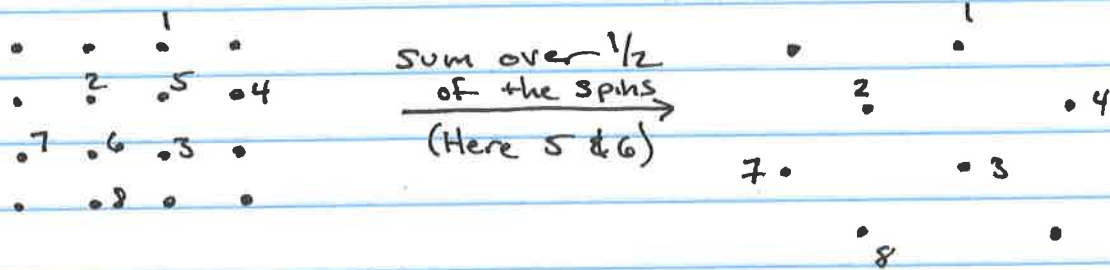 1
2 5 4
7 6 3
8
sum over 1/2
of the spins
(Here 5 & 6)
1
2 4
7 3
8